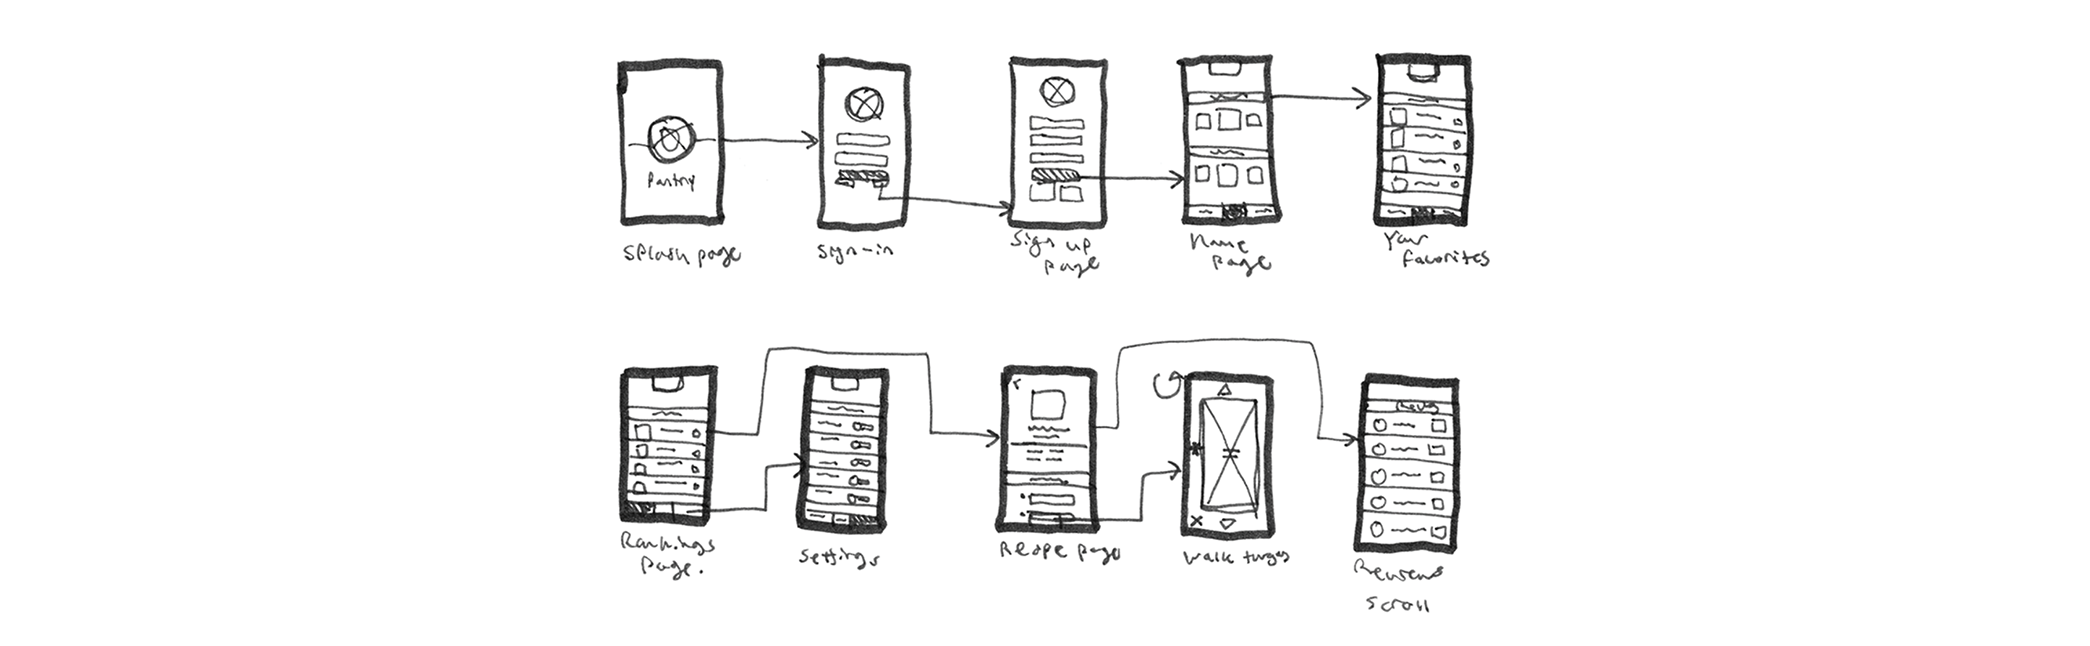 Pantry
Splash page
Sign-in
Sign up
page
Home
page
Your
favorites
Rankings
page.
Settings
Recipe page
walk
Reviews
scroll